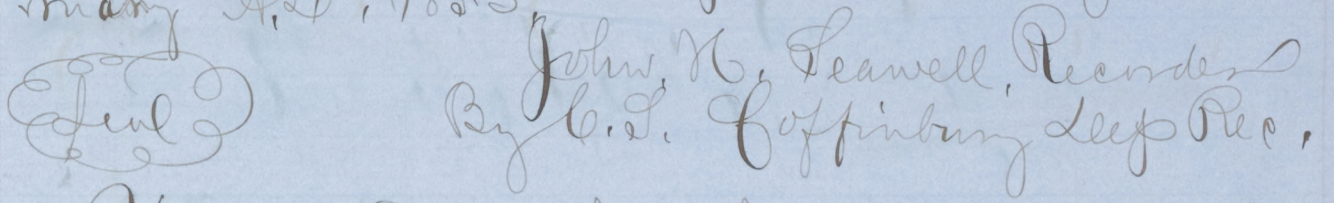 A.D.,
John. H. Seawell, Recorder
Seal By C. S. Coffinbury Dep Rec.